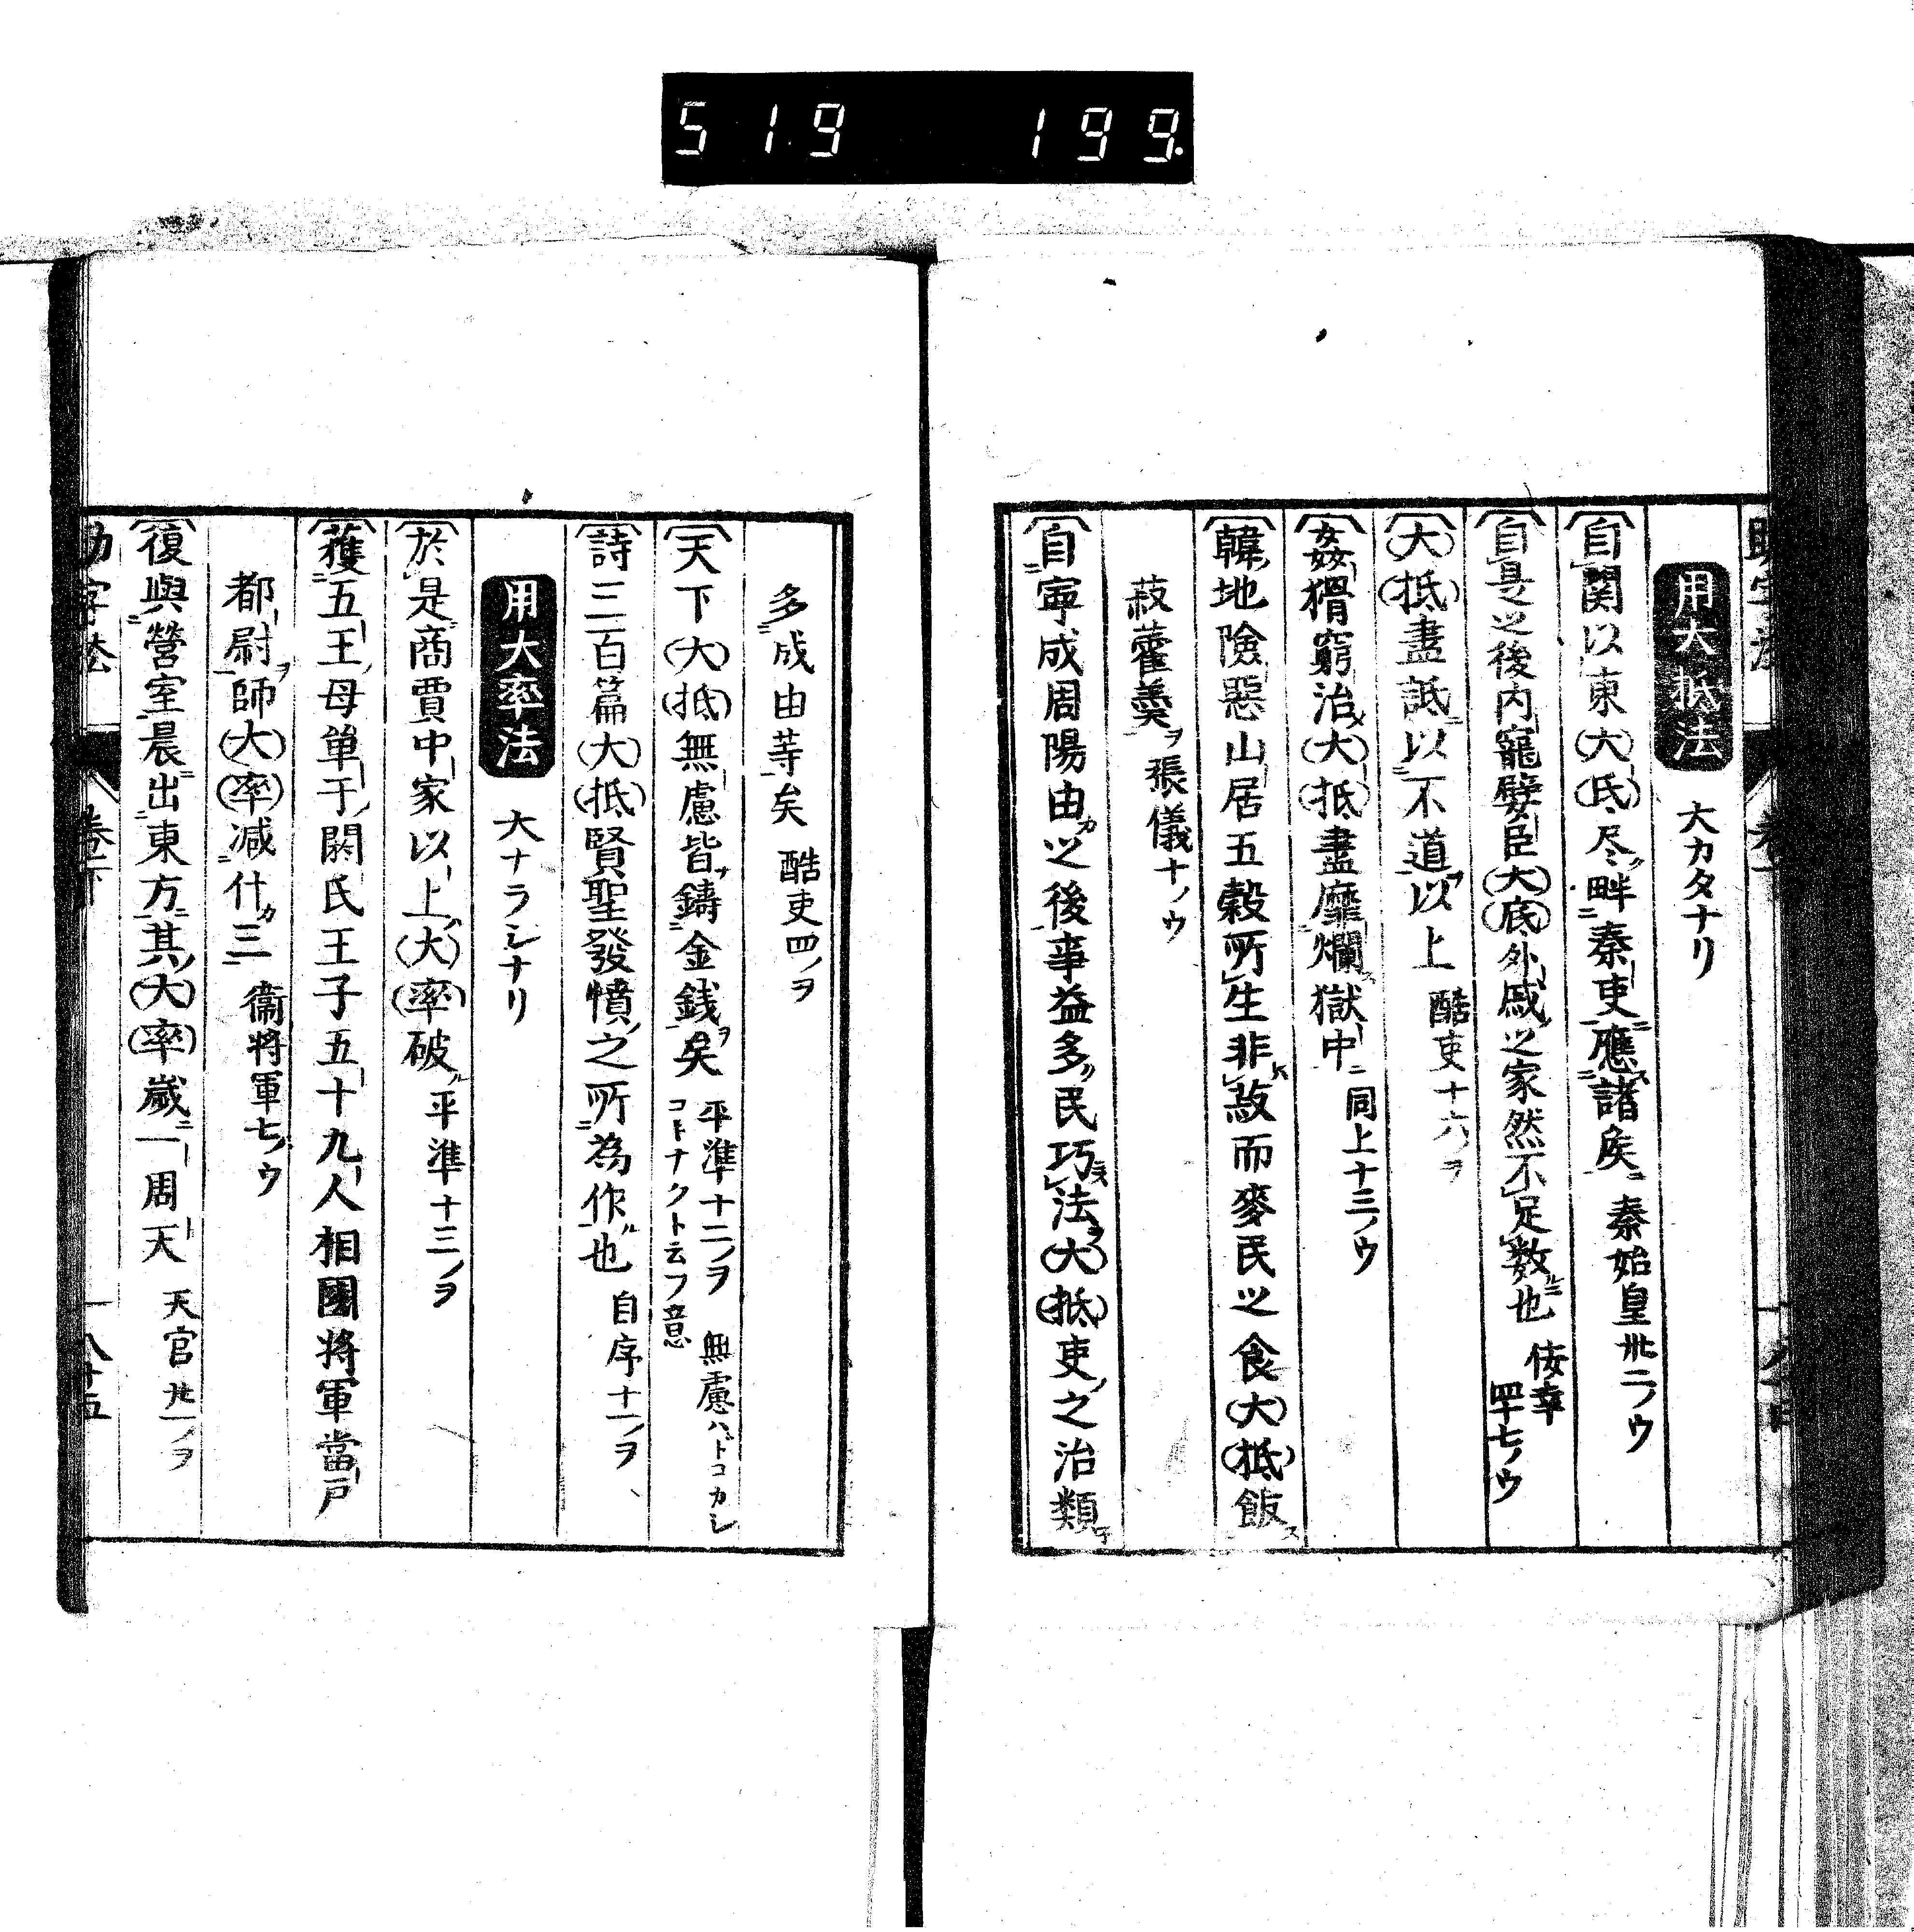 519 199.
用大抵法 大カタナリ
自関以東大氐尽畔秦吏應諸矦 秦始皇卅二ノウ
自是之後内寵嬖臣大底外戚之家然不足数也 佞幸四十七ノウ
大抵盡詆以不道以上 酷吏十六ノヲ
姦猾窮治大抵盡靡爛獄中 同上十三ノウ
韓地險惡山居五穀所生非菽而麥民之食大抵飯
菽藿羹ヲ 張儀十ノウ
自寧成周陽由之後事益多民巧法大抵吏之治類
多成由等矣 酷吏四ノヲ
天下大抵無慮皆鋳金銭矣 平準十二ノヲ 無慮ハトコカシ
コトナクト云フ意
詩三百篇大抵賢聖發憤之所為作也 自序十一ノヲ
用大率法 大ナラシナリ
於是商賈中家以上大率破 平準十三ノヲ
獲五王母単于閼氏王子五十九人相國将軍當戸
都尉師大率减什三 衞将軍七ノウ
復與營室晨出東方其大率歳一周天 天官廿一ノヲ
助字法 巻下 一 八十五